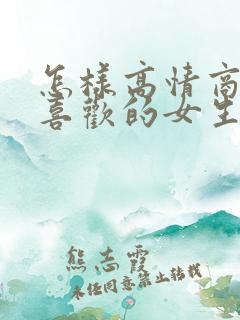 怎样高情商
喜歡的女生
熊志霞
未经同意禁止转载